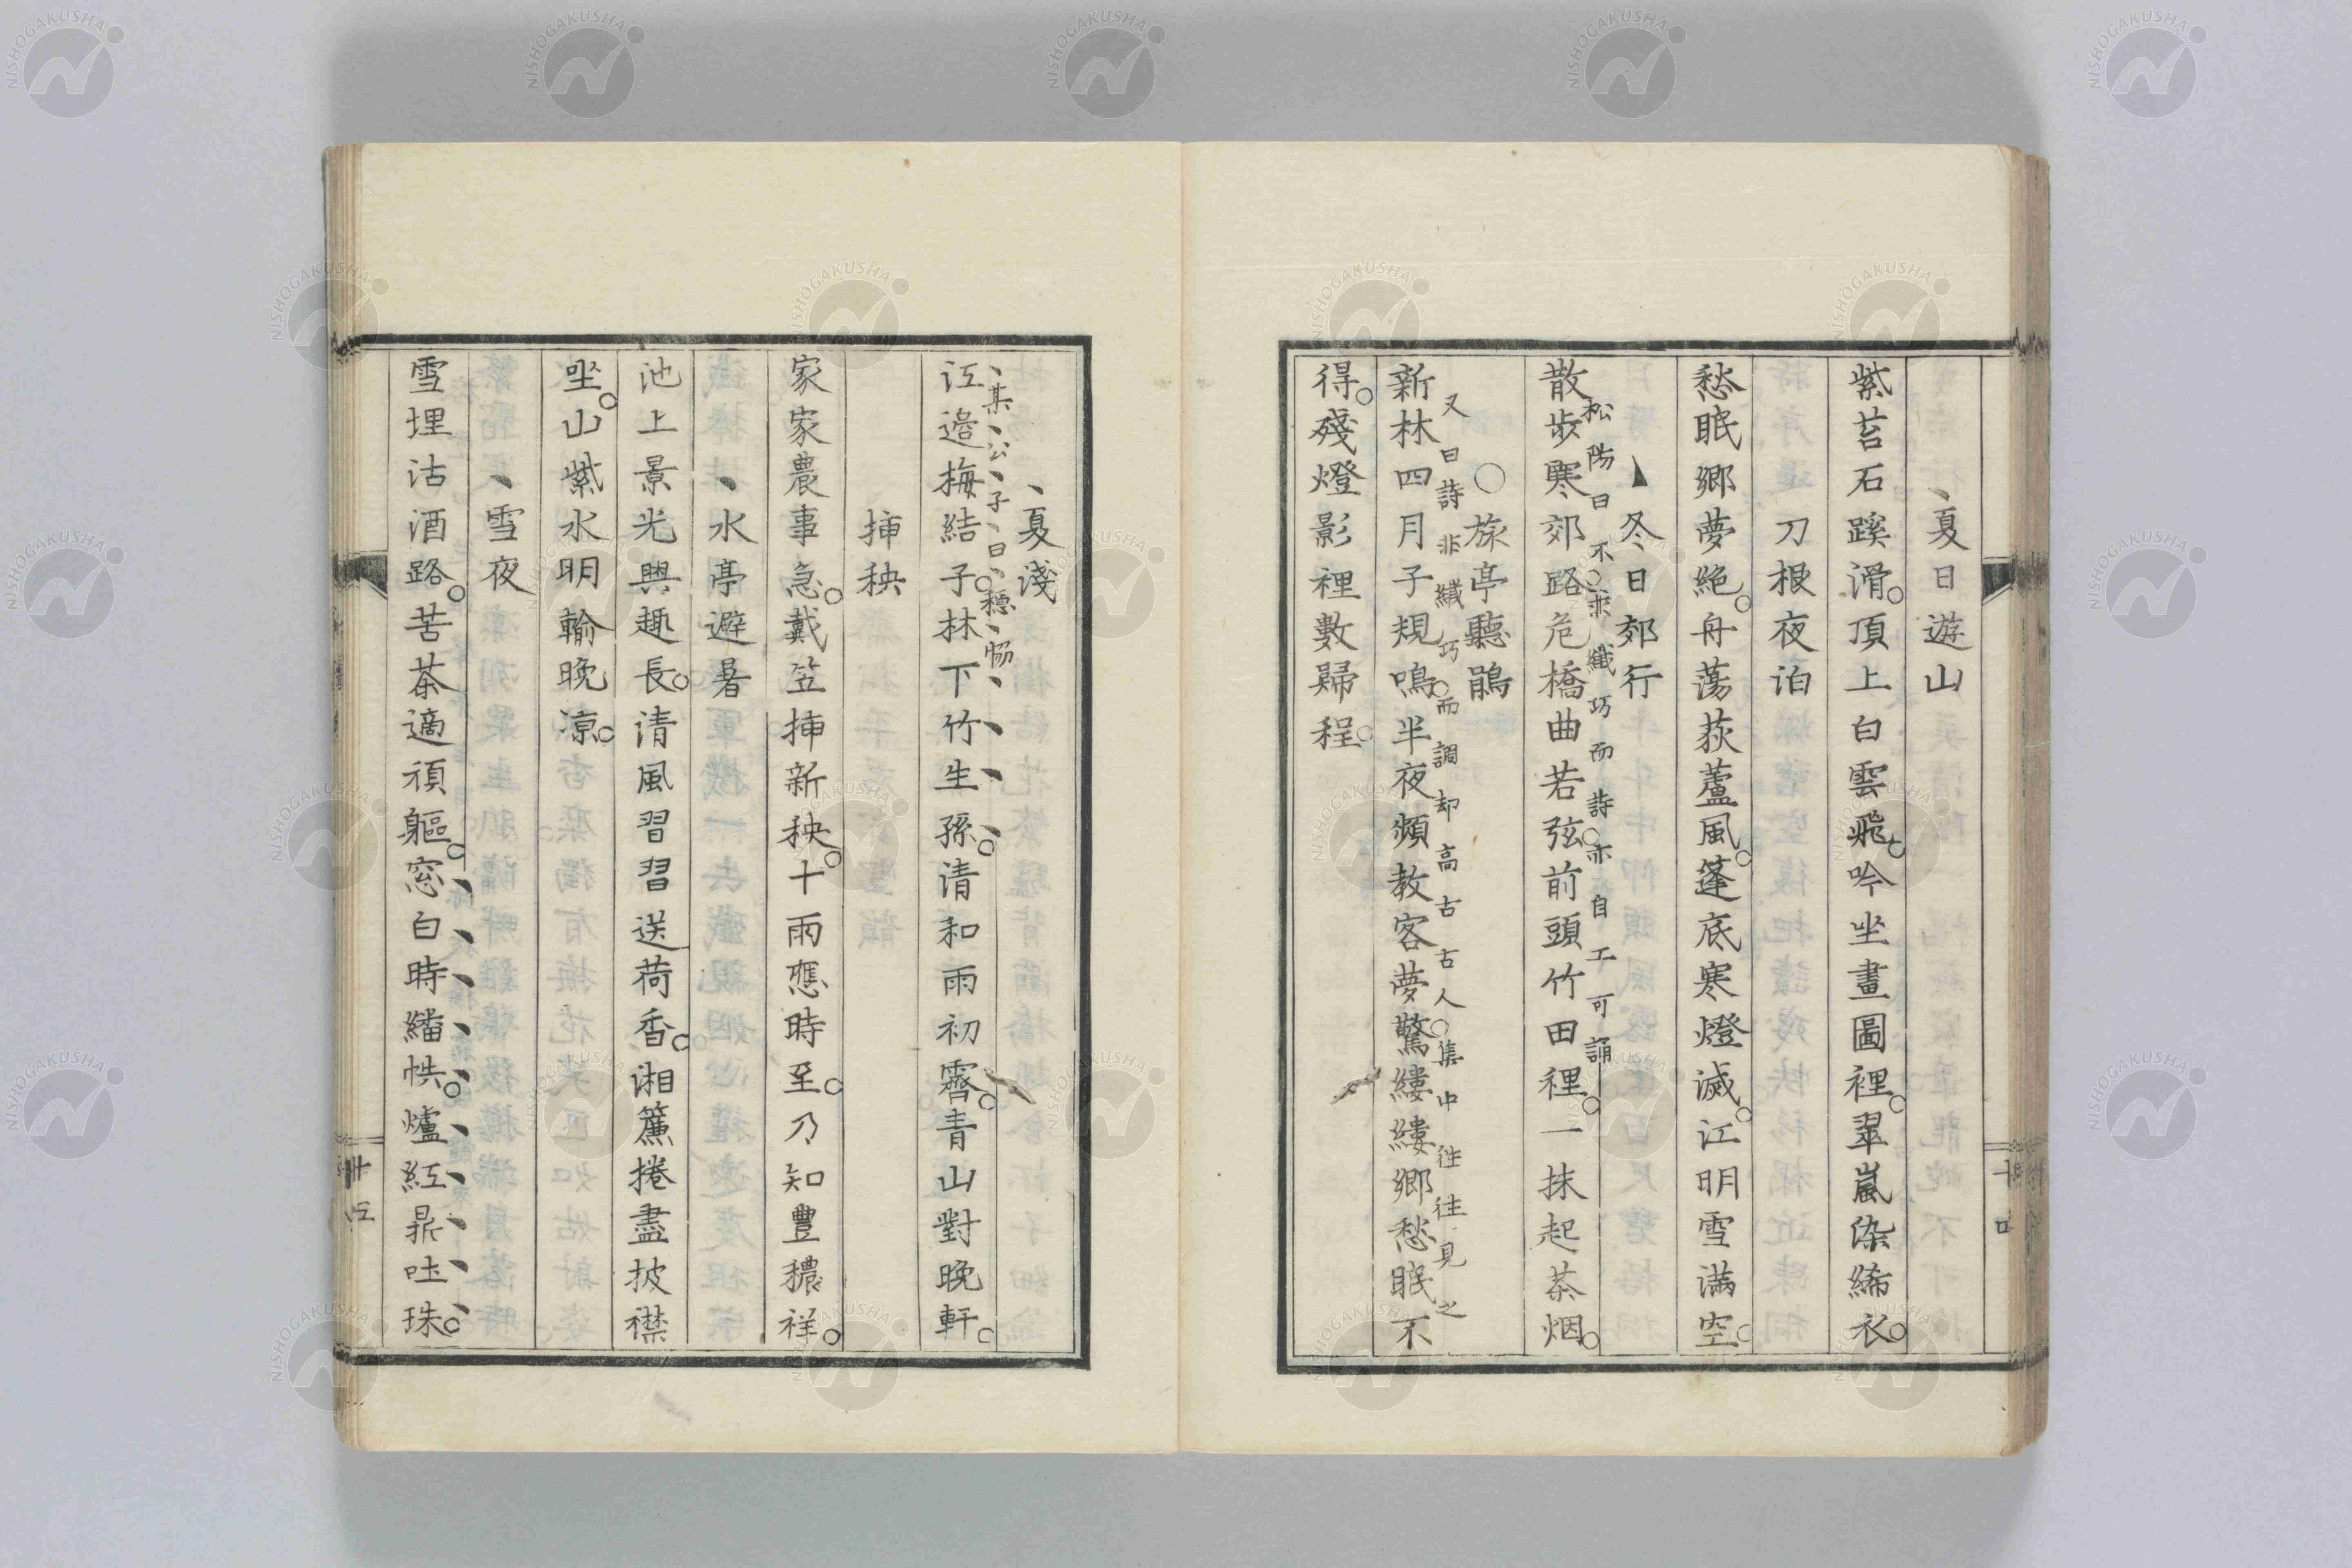 夏日遊山
紫苔石蹊滑。頂上白雲飛。吟坐畫圖裡。翠嵐染絺衣。
刀根夜泊
愁眠郷夢絶。舟蕩荻蘆風。篷底寒燈滅。江明雪滿空。
冬日郊行
松陽曰不求纖巧而詩亦自工可誦
散歩寒郊路危橋曲若弦。前頭竹田裡。一抹起茶烟。
○旅亭聽鵑
又曰詩非纖巧而調却高古古人集中往往見之
新林四月子規鳴。半夜頻教客夢驚縷縷郷愁眠不
得。殘燈影裡數歸程。
十四
夏淺
某公子曰穏暢
江邉梅結子。林下竹生孫。清和雨初霽。青山對晩軒。
挿秧
家家農事急。戴笠挿新秧。十雨應時至。乃知豊穰祥。
水亭避暑
池上景光興趣長。清風習習送荷香。湘簾捲盡披襟
坐。山紫水明輸晩凉。
雪夜
雪埋沽酒路。苦茶適頑軀。窓白時繙帙。爐紅鼎吐珠。
十五
NISHOGAKUSHA